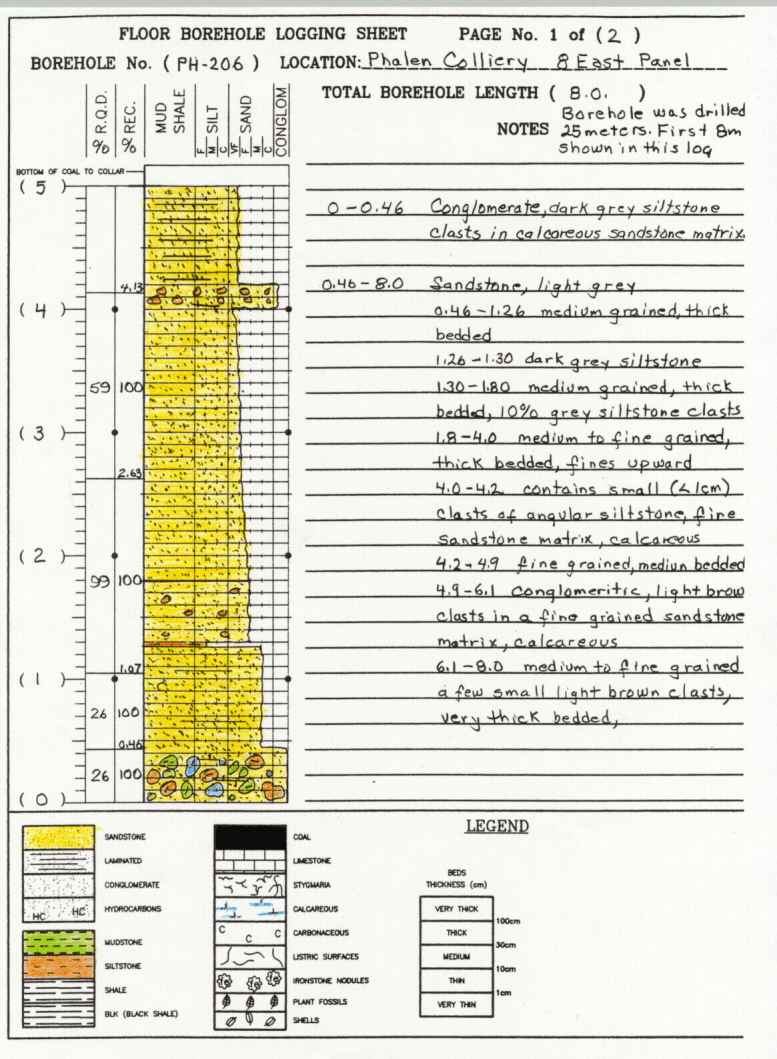 FLOOR BOREHOLE LOGGING SHEET PAGE No. 1 of (2)
BOREHOLE No. (PH-206) LOCATION: Phalen Colliery 8 East Panel
TOTAL BOREHOLE LENGTH (8.0.)
NOTES Borehole was drilled
25 meters. First 8m
shown in this log
% R.Q.D.
% REC.
MUD SHALE
SILT
F M C
SAND
VF F M C
CONGLOM
BOTTOM OF COAL TO COLLAR
(5)
0-0.46 Conglomerate, dark grey siltstone
clasts in calcareous sandstone matrix.
4.13
0.46-8.0 Sandstone, light grey
(4)
0.46-1.26 medium grained, thick
bedded
1.26-1.30 dark grey siltstone
59 100
1.30-1.80 medium grained, thick
bedded, 10% grey siltstone clasts
(3)
1.8-4.0 medium to fine grained,
thick bedded, fines upward
2.63
4.0-4.2 contains small (<1cm)
clasts of angular siltstone, fine
sandstone matrix, calcareous
(2)
4.2-4.9 fine grained, mediun bedded
99 100
4.9-6.1 Conglomeritic, light brow
clasts in a fine grained sandstone
matrix, calcareous
1.07
6.1-8.0 medium to fine grained
(1)
a few small light brown clasts,
26 100
very thick bedded,
0.46
26 100
(0)
LEGEND
SANDSTONE
LAMINATED
CONGLOMERATE
HC HC
HYDROCARBONS
MUDSTONE
SILTSTONE
SHALE
BLK (BLACK SHALE)
COAL
LIMESTONE
STYGMARIA
CALCAREOUS
C C C
CARBONACEOUS
LISTRIC SURFACES
IRONSTONE NODULES
PLANT FOSSILS
SHELLS
BEDS
THICKNESS (cm)
VERY THICK
100cm
THICK
30cm
MEDIUM
10cm
THIN
1cm
VERY THIN